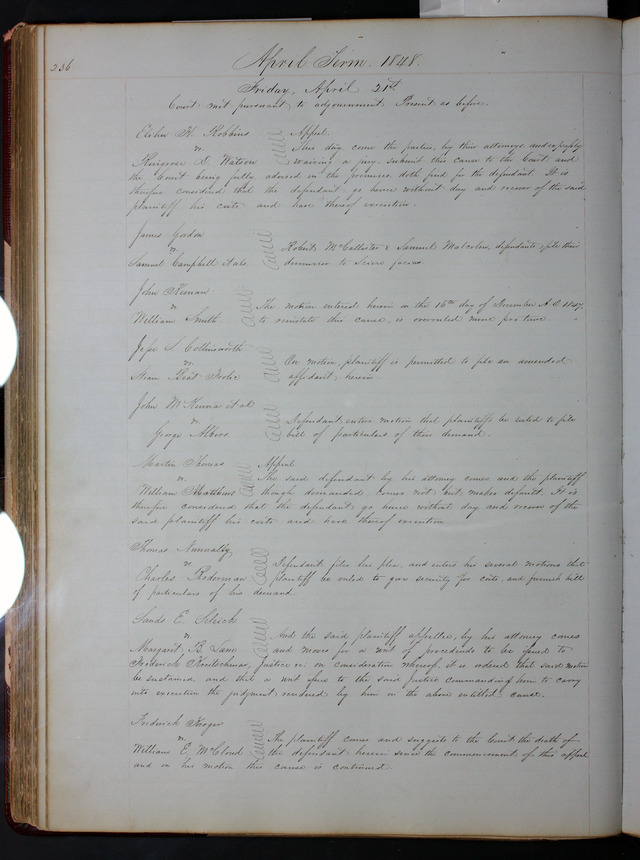 236
April Term. 1848.
Friday, April 21st
Court met pursuant to adjournment. Present as before.
Elisha H. Robbins
vs.
Kingrose D. Watson
Appeal.
This day come the parties, by their attorneys and
waiving a jury submit this cause to the Court and
the Court being fully advised in the premises doth find for the defendant. It is
therefore considered that the defendant go hence without day and recover of the said
plaintiff his costs and have thereof execution.
James Gordon
vs
Samuel Campbell et als
Robert McCallister & Samuel Malcolm, defendants, file their
demurrer to Scire facias.
John
vs
William Smith
The motion entered herein on the 16th day of December A.D. 1847,
to reinstate this cause, is overruled nunc pro tunc
Jesse S. Collinsworth
vs.
Steam Boat
On motion, plaintiff is permitted to file an amended
affidavit herein
John McKenna et al
vs.
George
Defendant, enters motion that plaintiffs be ruled to file
bill of particulars of their demand.
Martin Thomas
vs.
William Hawkins
Appeal
The said defendant by his attorney comes and the plaintiff
though demanded, comes not, but makes default. It is
therefore considered that the defendant go hence without day and recover of the
said plaintiff his costs and have thereof execution
Thomas Nunnally,
vs
Charles
Defendant files his plea, and enters his several motions that
plaintiff be ruled to give security for costs, and furnish bill
of particulars of his demand.
Sands E.
vs
Margaret B. Lane
And the said plaintiff appellee, by his attorney comes
and moves for a writ of procedendo to be issued to
Frederick Kretschmar, Justice &c on consideration whereof, it is ordered that said motion
be sustained, and that a writ issue to the said Justice commanding him to carry
into execution the judgment rendered by him in the above entitled cause.
Frederick Kroger
vs
William E. McCloud
The plaintiff comes and suggests to the Court the death of
the defendant herein since the commencement of this appeal
and on his motion this cause is continued.